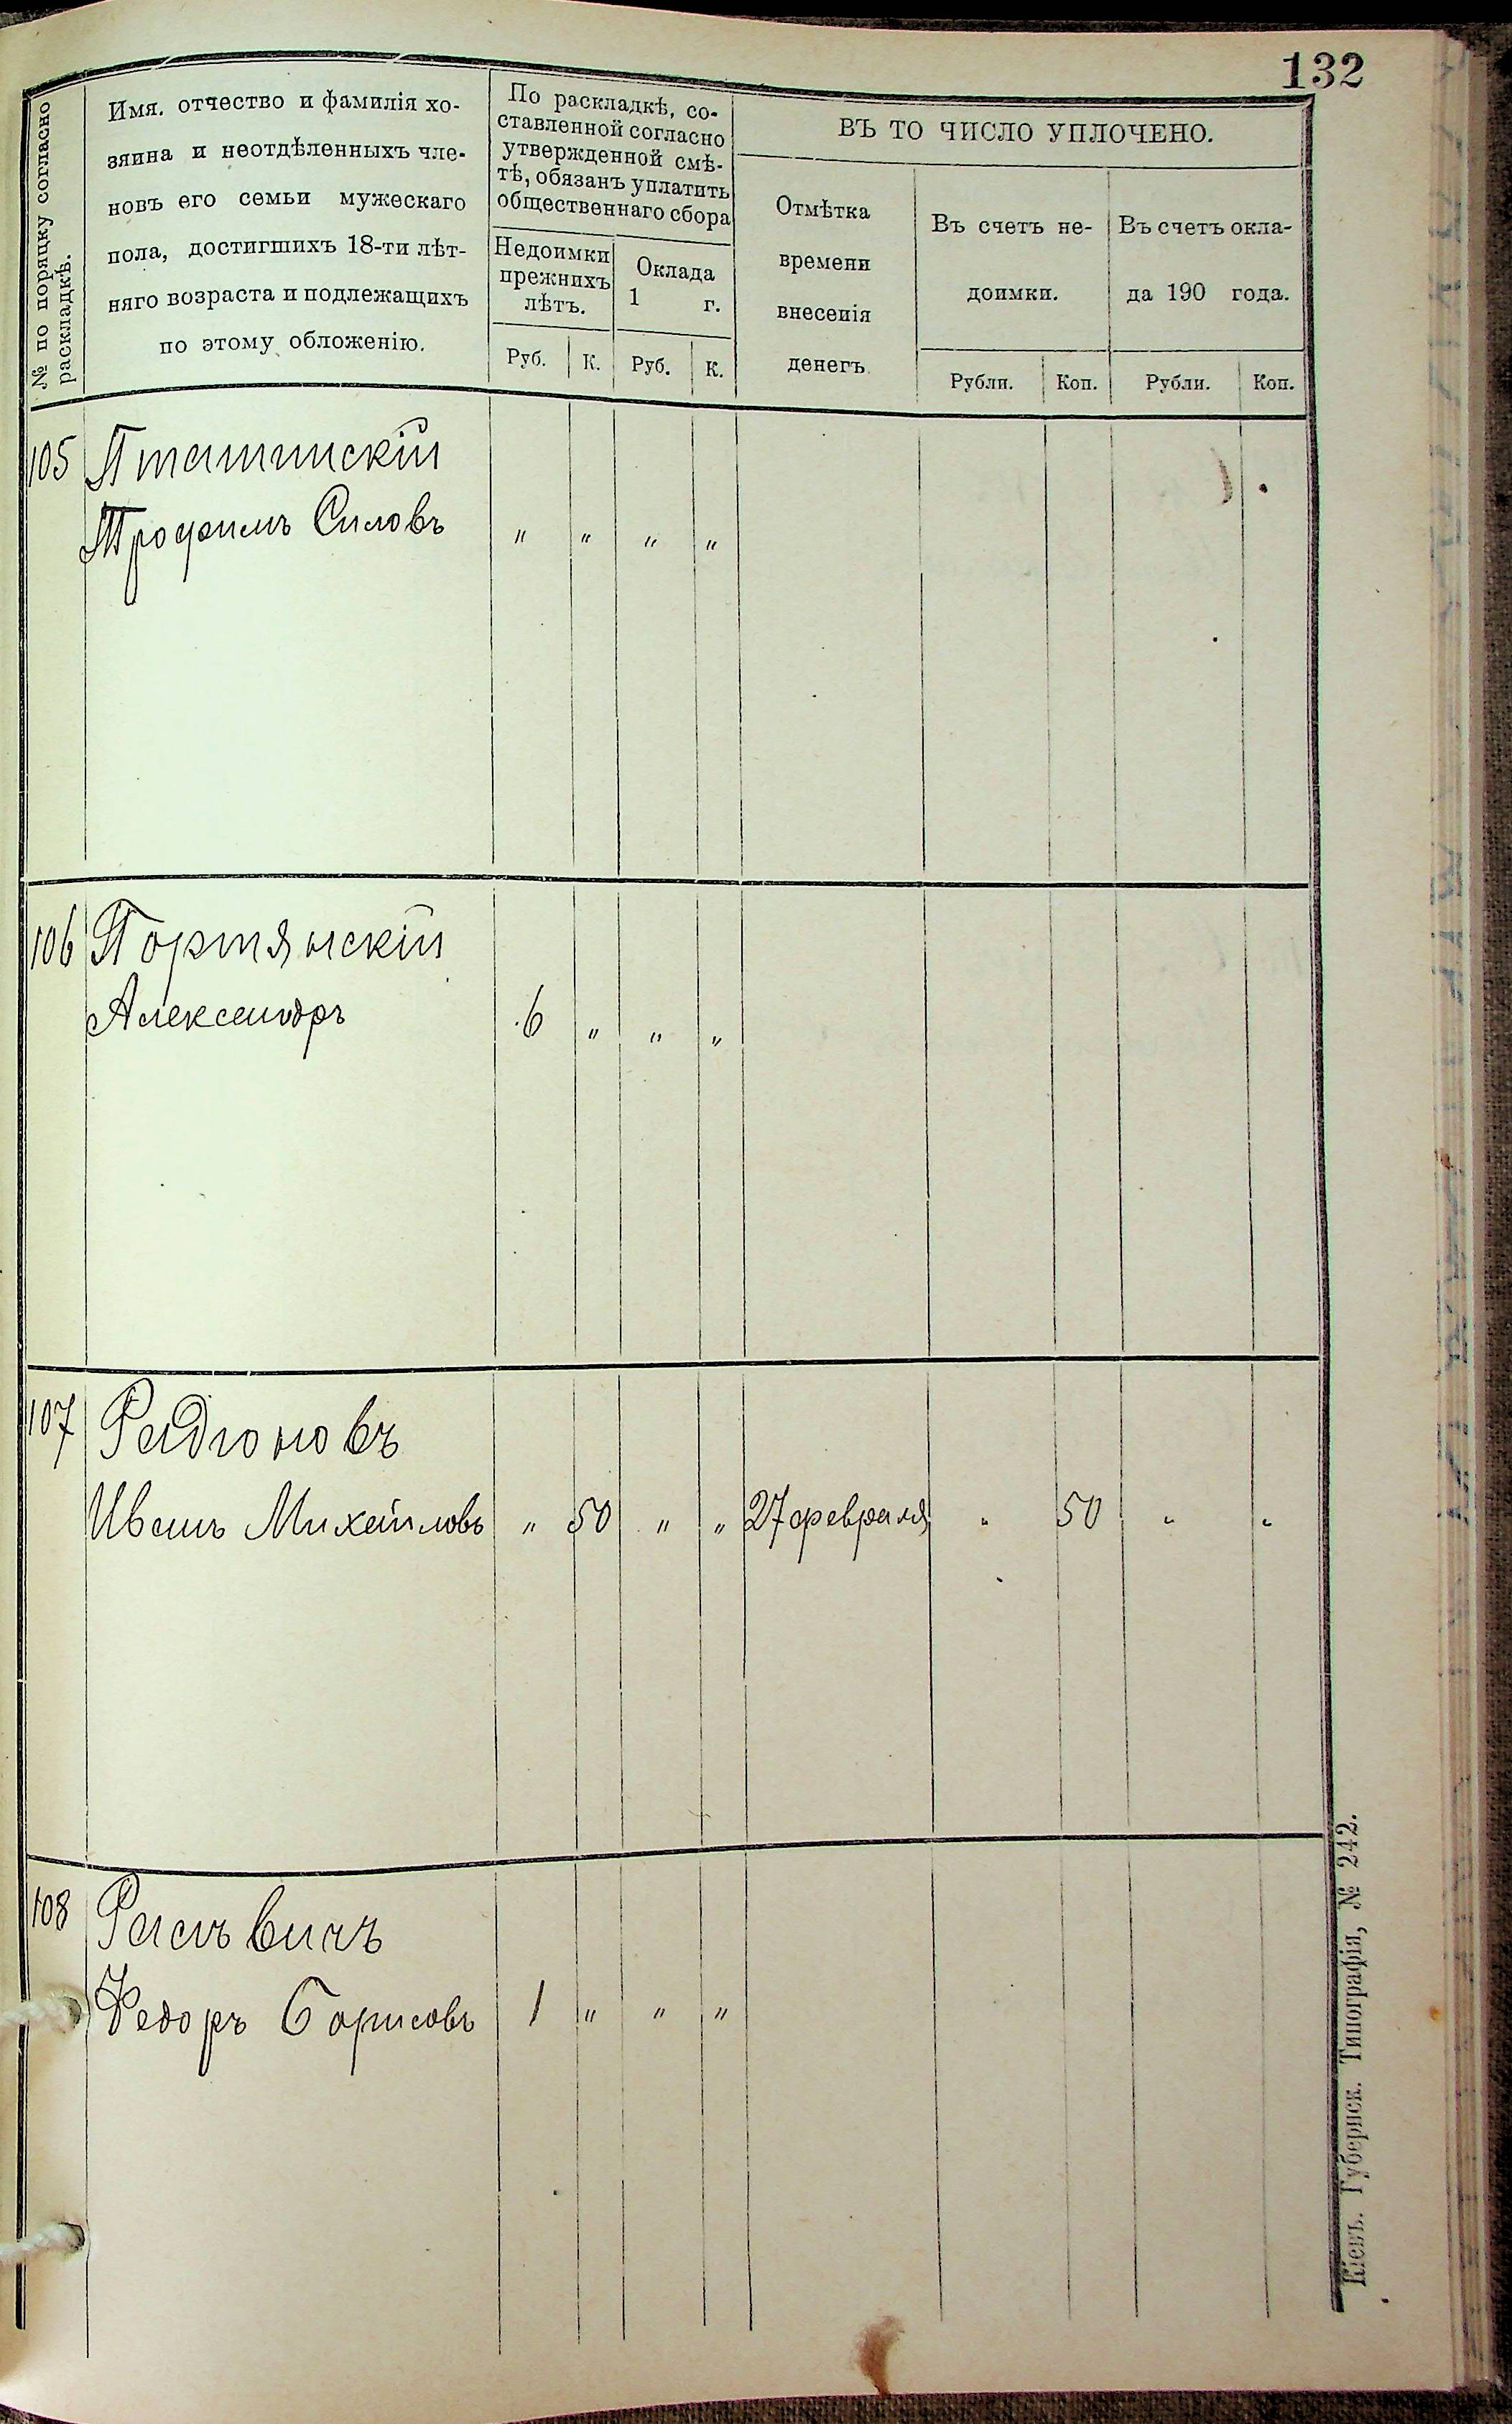 132
№ по порядку согласно
раскладкѣ.
Имя, отчество и фамилія хо-
зяина и неотдѣленныхъ чле-
новъ его семьи мужескаго
пола, достигшихъ 18-ти лѣт-
няго возраста и подлежащихъ
по этому обложенію.
По раскладкѣ, со-
ставленной согласно
утвержденной смѣ-
тѣ, обязанъ уплатить
общественнаго сбора
Недоимки
прежнихъ
лѣтъ.
Оклада
1 г.
Руб. К. Руб. К.
ВЪ ТО ЧИСЛО УПЛОЧЕНО.
Отмѣтка
времени
внесенія
денегъ.
Въ счетъ не-
доимки.
Въ счетъ окла-
да 190 года.
Рубли. Коп. Рубли. Коп.
105 Пташинскій
Трофимъ Силовъ " " " "
106 Портянскій
Александръ 6 " " "
107 Радіоновъ
Иванъ Михайловъ " 50 " " 27 февраля " 50 " "
108
Федоръ Борисовъ 1 " " "
Кіевъ. Губернск. Типографія, № 242.